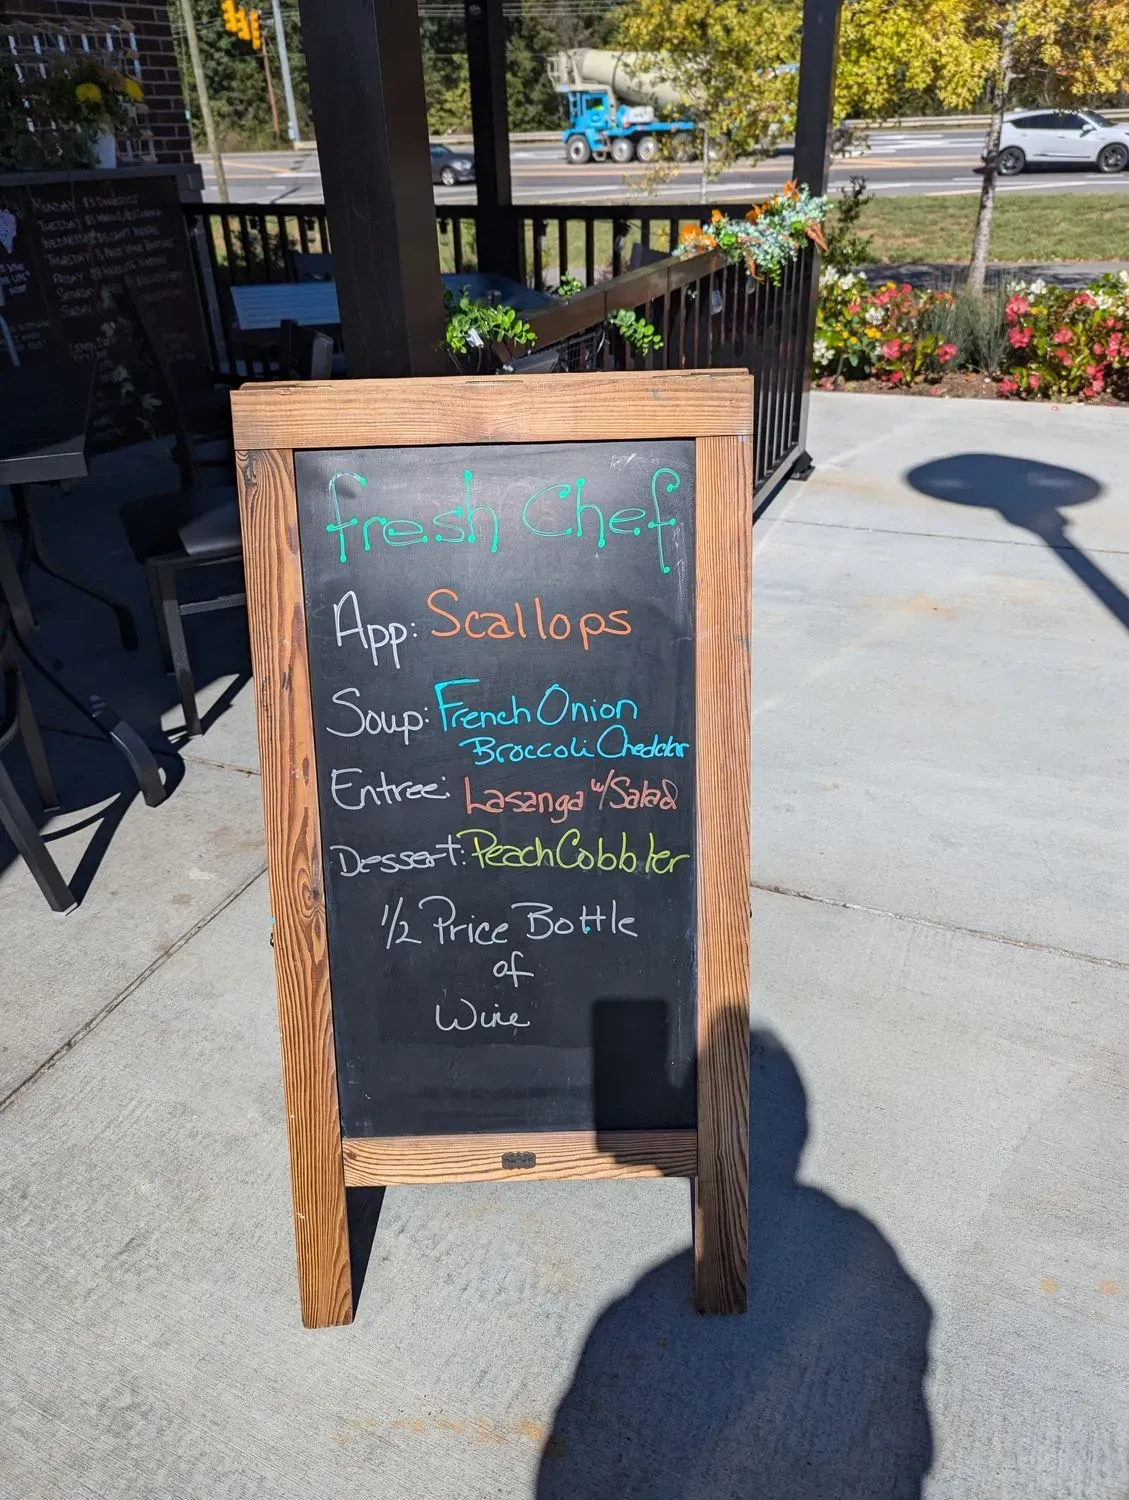 fresh Chef
App: Scallops
Soup: French Onion
Broccoli Cheddar
Entree: Lasanga w/ Salad
Dessert: Peach Cobbler
1/2 Price Bottle
of
Wine
MONDAY
TUESDAY
WEDNESDAY
THURSDAY
FRIDAY